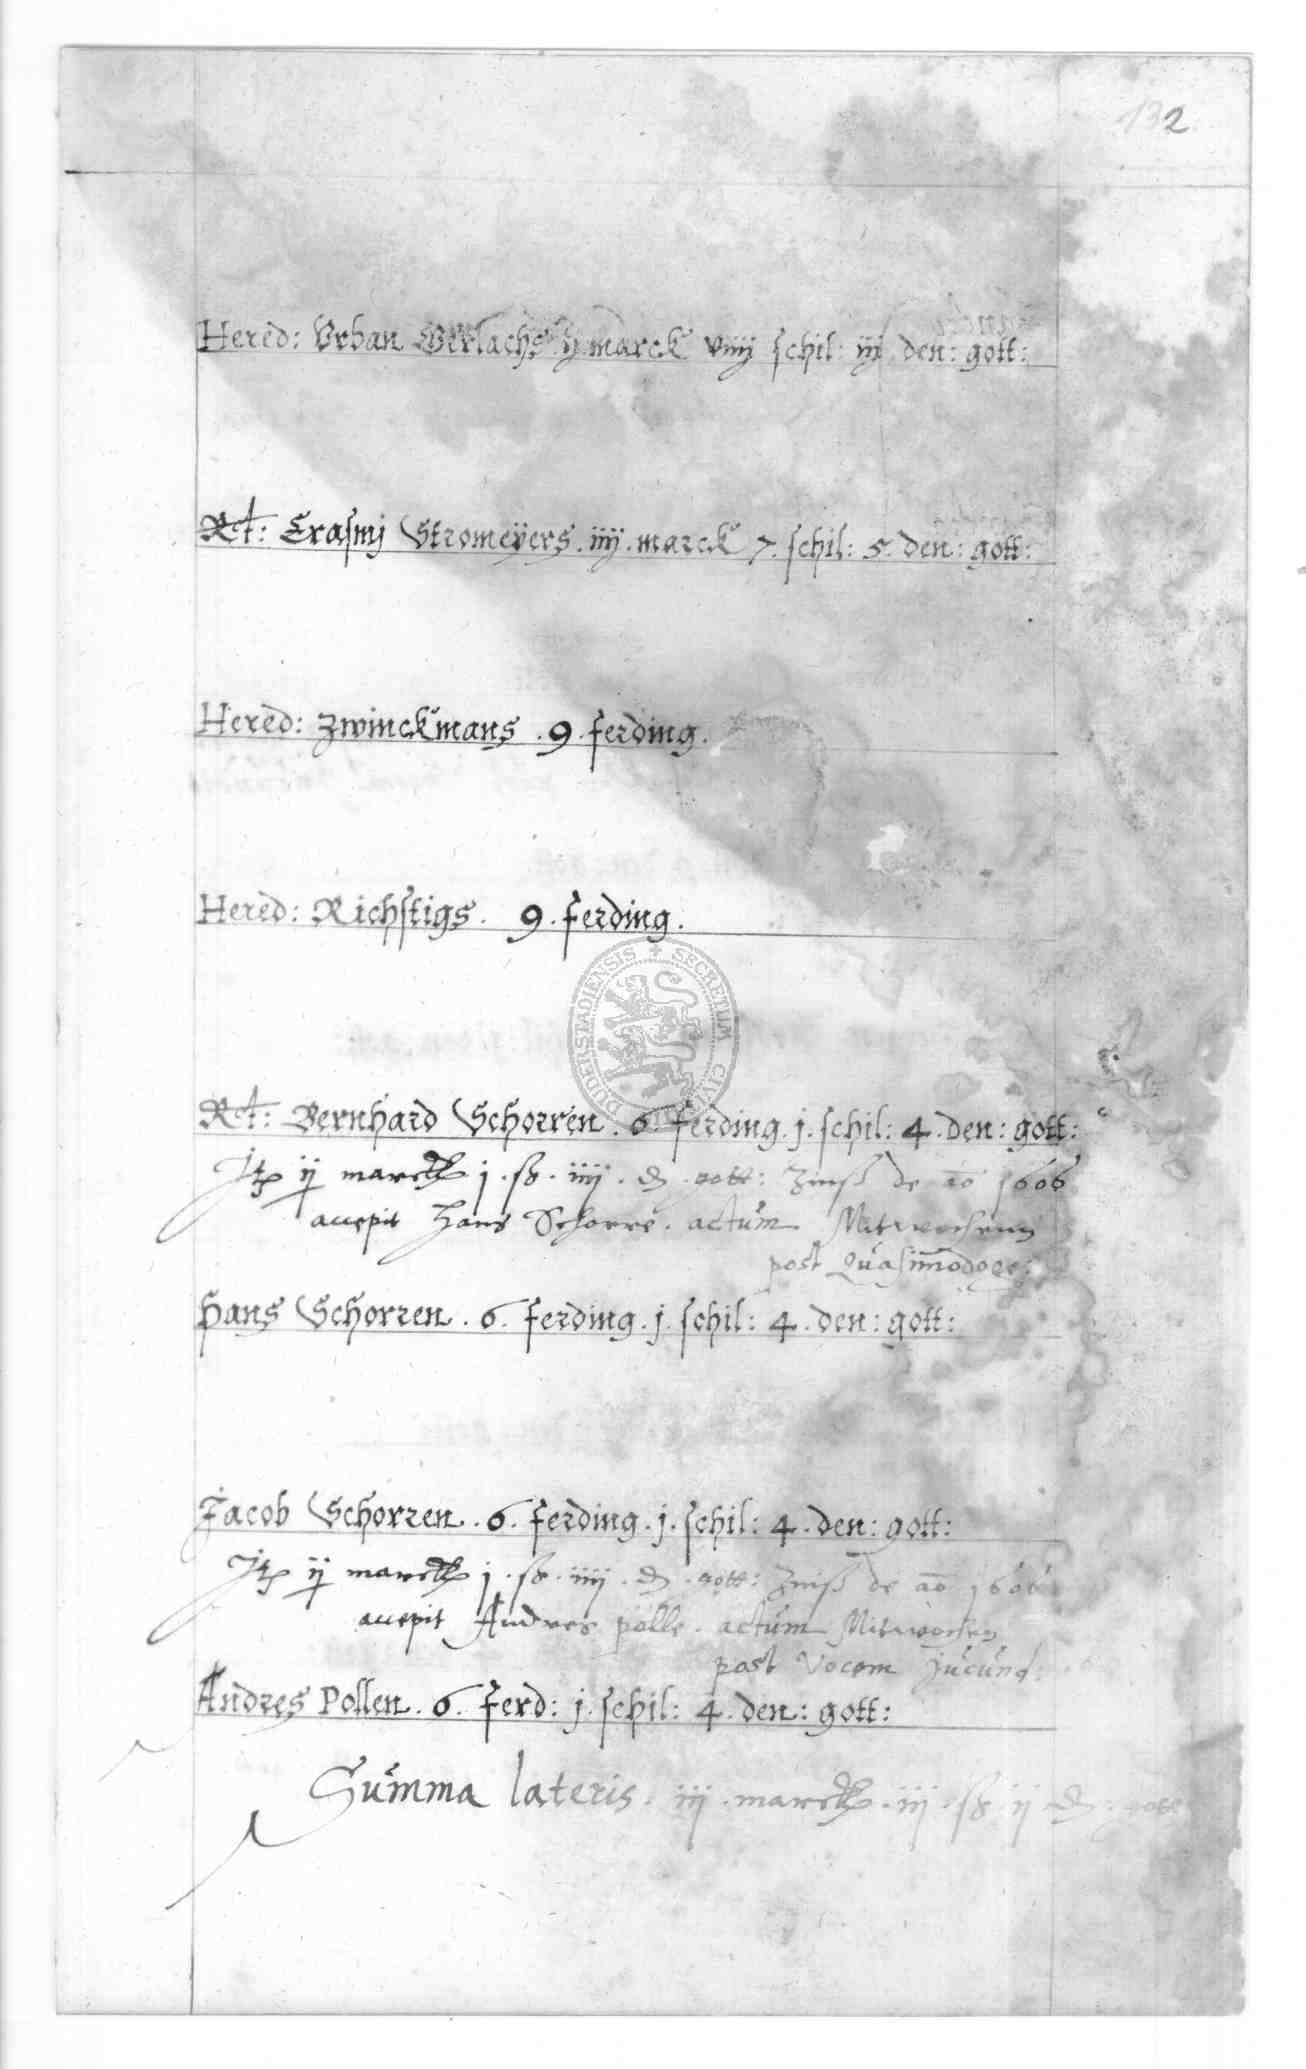 132
Hered: Vrban Gerlachs ij marck viiij schil: iij den: gott:
Rct: Erasmj Stromeÿers . iiij . marck 7. schil: 5. den: gott:
Hered: Zwinckmans . 9 . ferding .
Hered: Richstigs . 9 . ferding .
DUDERSTADIENSIS SECRETUM CIVI
Rct: Bernhard Schorren . 6 . ferding . j . schil: 4 . den: gott:
Jtz ij marck j . ß . iiij . d . gott: Zinß de ao 1606
accepit Hans Schorre . actum Mitwochenn
post Quasimodoge:
Hans Schorren . 6 . ferding . j . schil: 4 . den: gott:
Jacob Schorren . 6 . ferding . j . schil: 4 . den: gott:
Jtz ij marck j . ß . iiij . d . gott: Zinß de ao 1606
accepit Andres polle . actum Mitwochen
post Vocem Jucund:
Andres Pollen . 6 . ferd: j . schil: 4 . den: gott:
Summa lateris . iij . marck . iij . ß ij d . gott